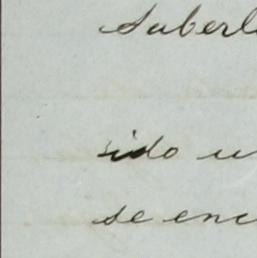 Saberl
sido u
se enc